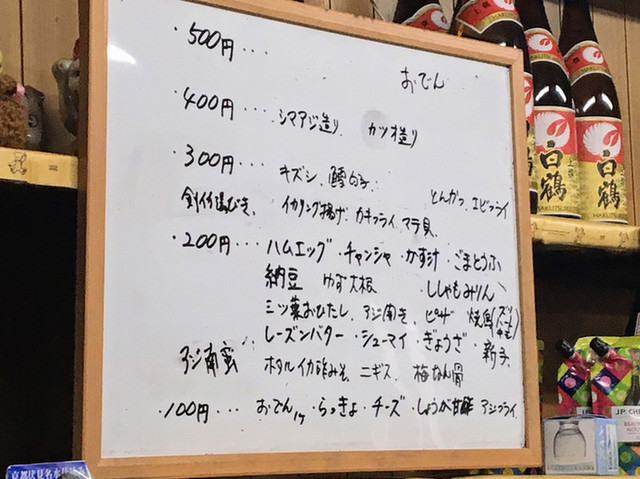 ・500円・・・
おでん
・400円・・・シマアジ造り、カツオ造り
・300円・・・キズシ、鱈白子
とんかつ、エビフライ
イカリング揚げ、カキフライ、マテ貝、
・200円・・・ハムエッグ・チャンジャ・かす汁・ごまとうふ
納豆 ゆず大根 ・ししゃもみりん
三ツ葉おひたし、アジ南き、ピザ 焼鳥
レーズンバター・シューマイ・ぎょうざ・新子、
アジ南蛮
ホタルイカ酢みそ、ニギス、梅なん骨
・100円・・・おでん1ヶ・らっきょ・チーズ・しょうが甘酢 アジフライ
白鶴
HAKUTSURU
白鶴
HAKUTSURU
J.P. CHE